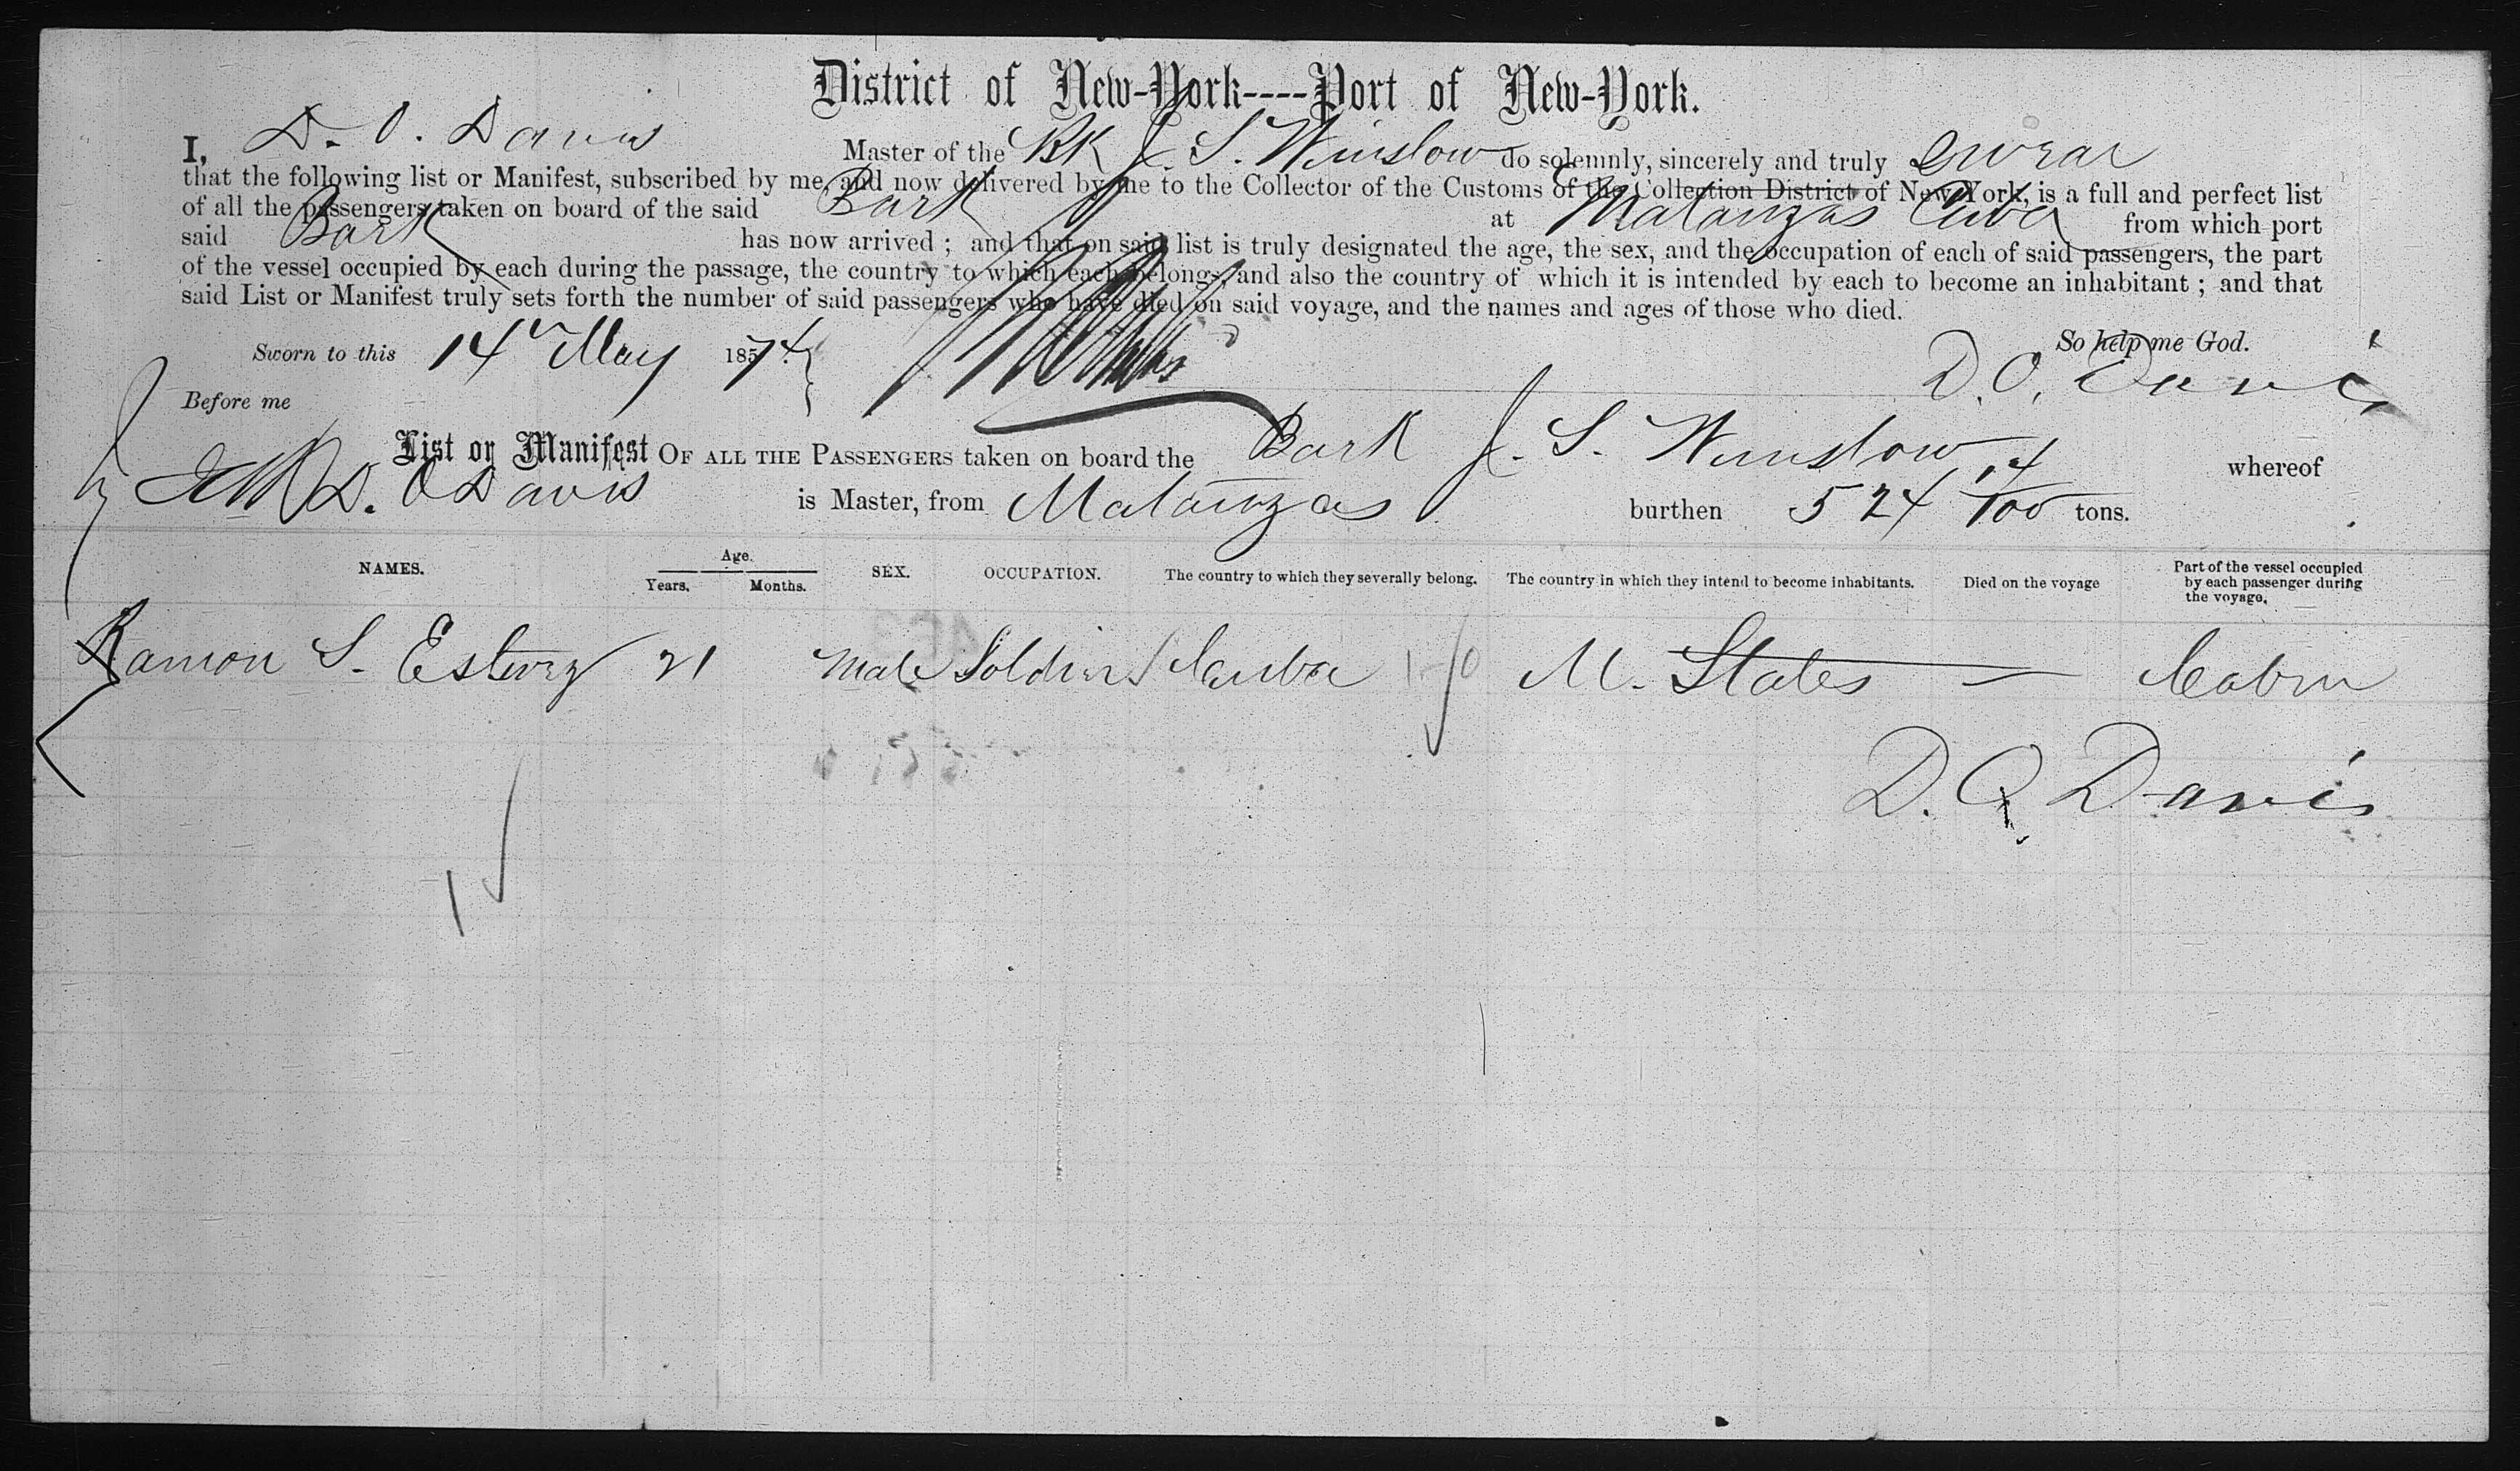 District of New-York----Port of New-York.
I, D. O. Davis Master of the Bk J. S. Winslow do solemnly, sincerely and truly swear
that the following list or Manifest, subscribed by me, and now delivered by me to the Collector of the Customs of the Collection District of New York, is a full and perfect list
of all the passengers taken on board of the said Bark at Matanzas Cuba from which port
said Bark has now arrived ; and that on said list is truly designated the age, the sex, and the occupation of each of said passengers, the part
of the vessel occupied by each during the passage, the country to which each belongs, and also the country of which it is intended by each to become an inhabitant ; and that
said List or Manifest truly sets forth the number of said passengers who have died on said voyage, and the names and ages of those who died.
Sworn to this 14 May 1874. So help me God.
D. O. Davis
Before me
List or Manifest OF ALL THE PASSENGERS taken on board the Bark J. S. Winslow whereof
D. O Davis is Master, from Matanzas burthen 524 14/100 tons.
NAMES. Age. Years. Months. SEX. OCCUPATION. The country to which they severally belong. The country in which they intend to become inhabitants. Died on the voyage Part of the vessel occupied by each passenger during the voyage.
Ramon S. Estevez 21 Male Soldier Cuba U. States — Cabin
D. O. Davis